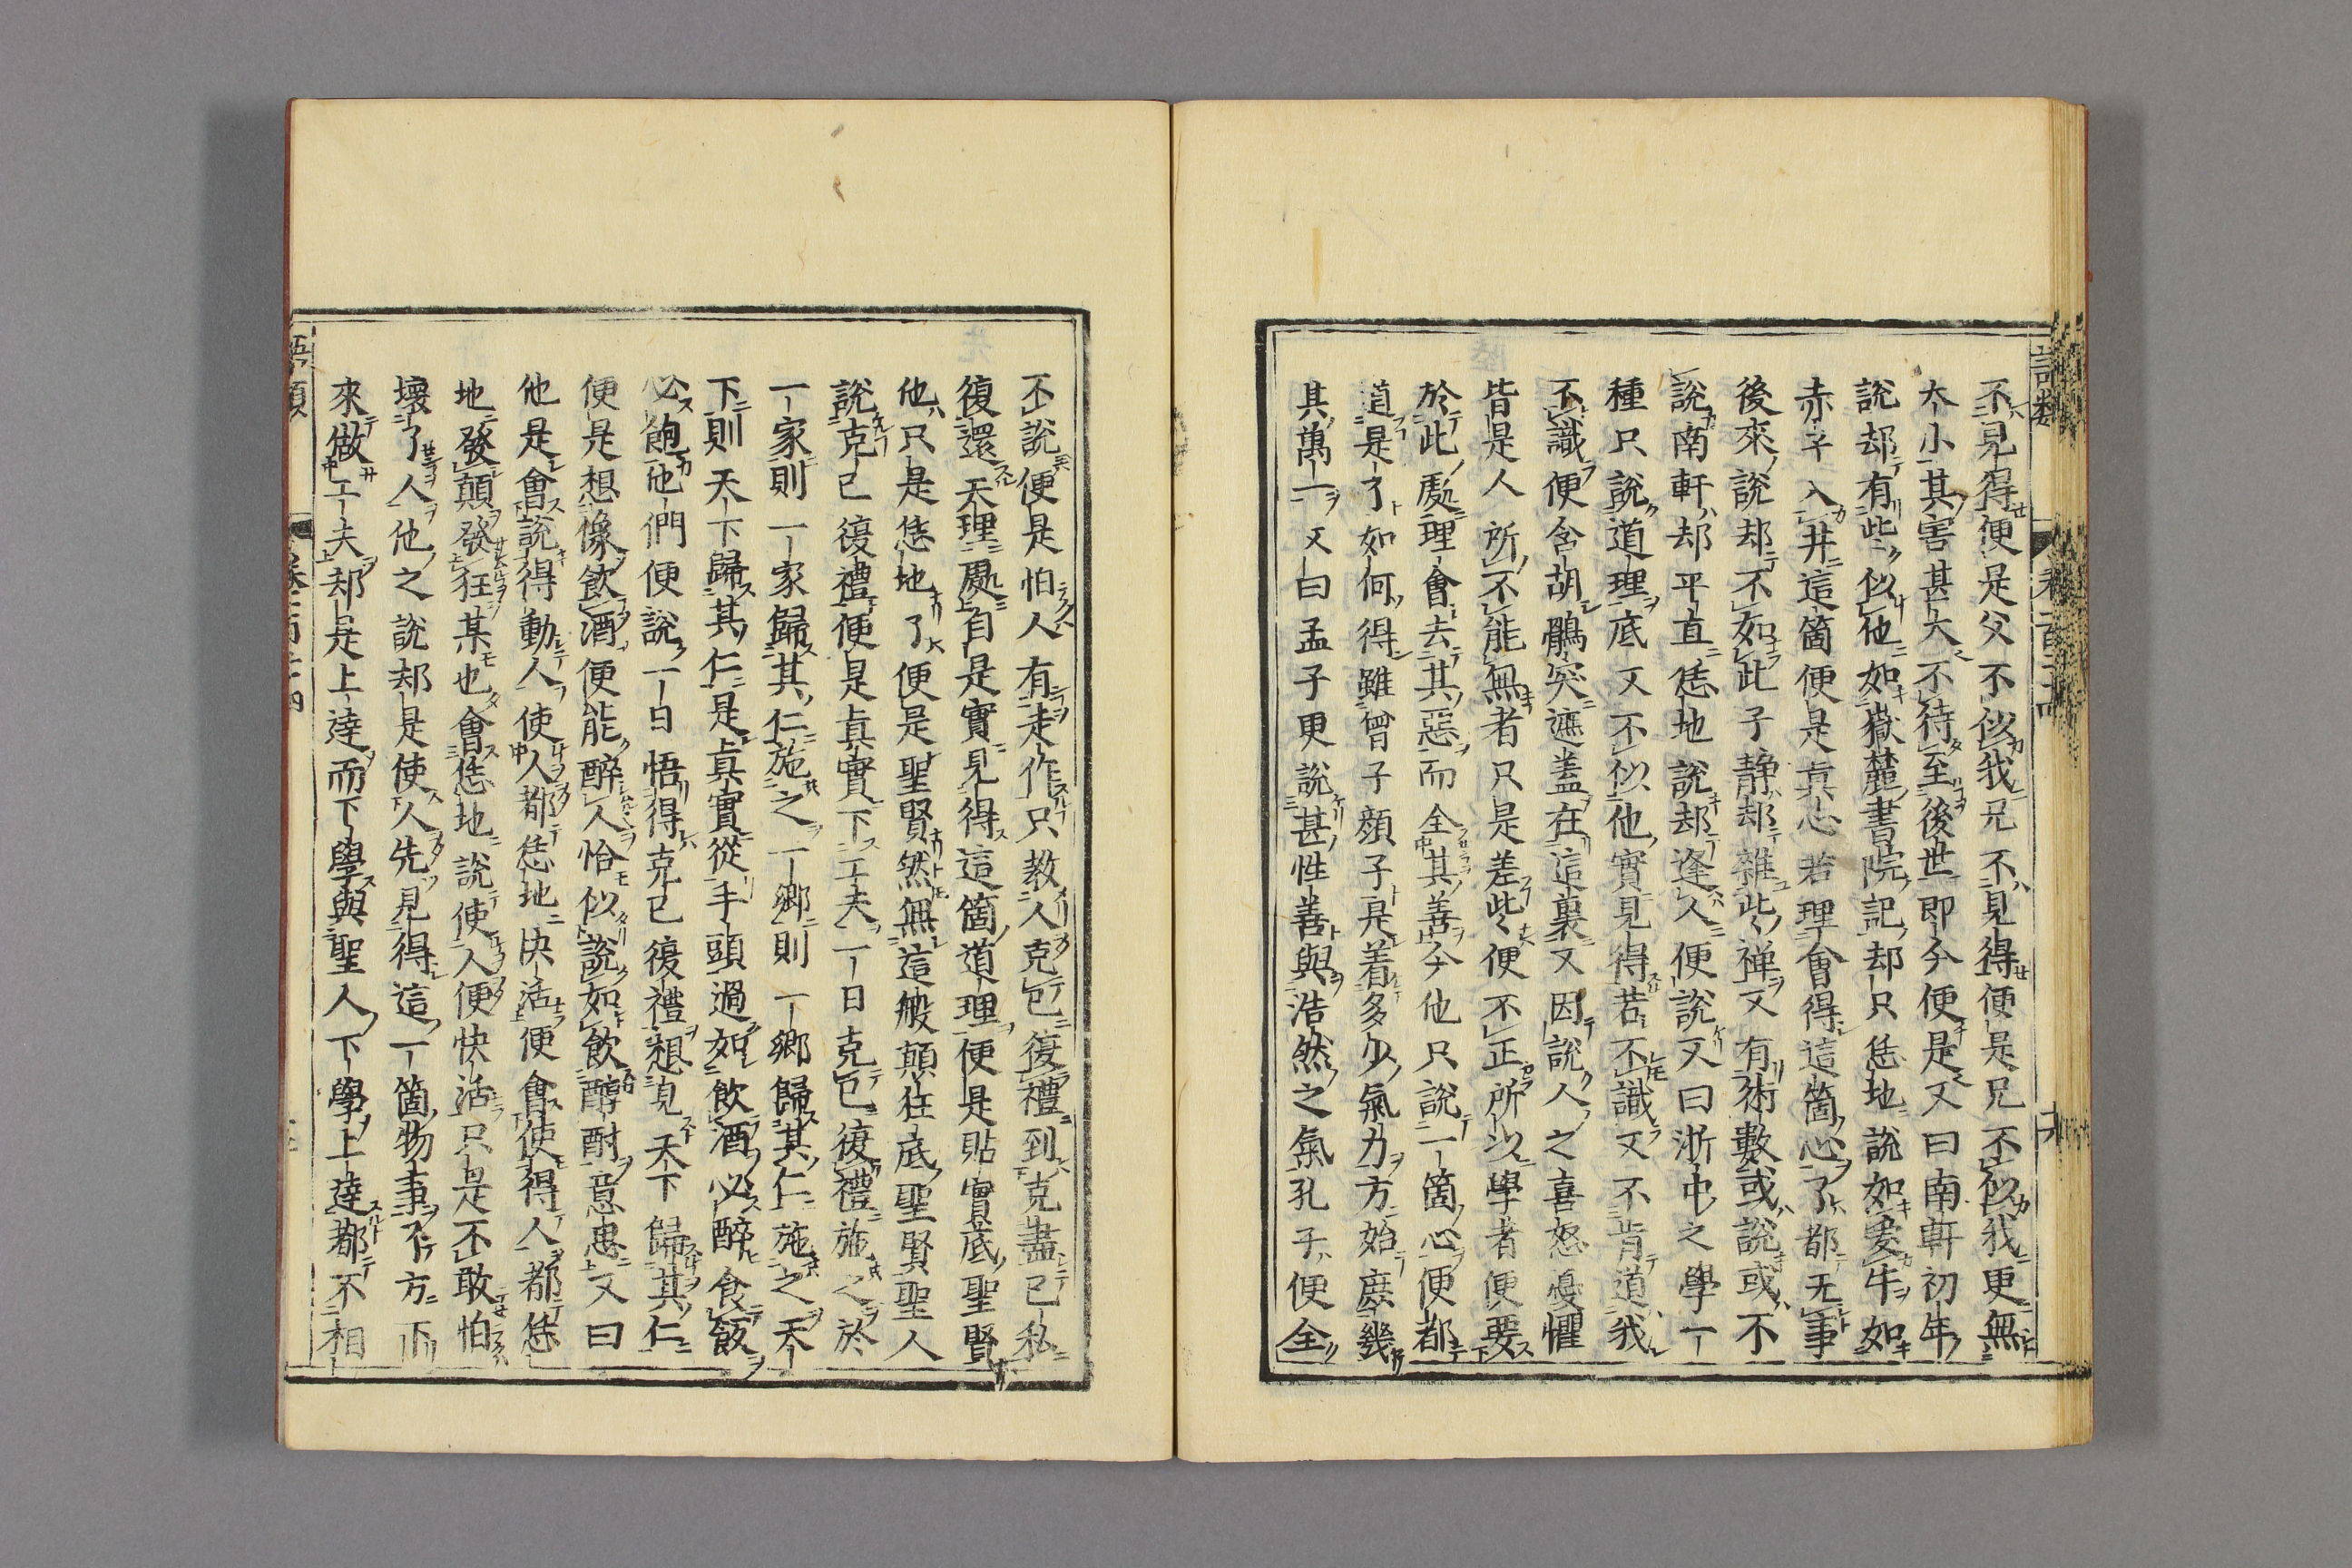 不見得便是父不似我兄不見得便是兄不似我更無
大小其害甚大不待至後世即今便是又曰南軒初年
說却有些似他如嶽麓書院記却只恁地說如愛牛如
赤子入井這箇便是真心若理會得這箇心了都无事
後來說却不如此子靜却雜些禅又有術數或說或不
說南軒却平直恁地說却逢人便說又曰浙中之學一
種只說道理底又不似他實見得若不識又不肯道我
不識便含胡鶻突遮盖在這裏又因說人之喜怒憂懼
皆是人所不能無者只是差些便不正所以學者便要
於此處理會去其惡而全其善今他只說一箇心便都
道是了如何得雖曾子顔子是着多少氣力方始庶幾
其萬一又曰孟子更說甚性善與浩然之氣孔子便全
不說便是怕人有走作只教人克己復禮到克盡己私
復還天理處自是實見得這箇道理便是貼實底聖賢
他只是恁地了便是聖賢然無這般顛狂底聖賢聖人
說克己復禮便是真實下工夫一日克己復禮施之於
一家則一家歸其仁施之一鄉則一鄉歸其仁施之天
下則天下歸其仁是真實從手頭過如飲酒必醉食飯
必飽他們便說一日悟得克己復禮想見天下歸其仁
便是想像飲酒便能醉人恰似說如飲醇酎意思又曰
他是會說得動人使人都恁地快活便會使得人都恁
地發顛發狂某也會恁地說使人便快活只是不敢怕
壞了人他之說却是使人先見得這一箇物事了方下
來做工夫却是上達而下學與聖人下學上達都不相